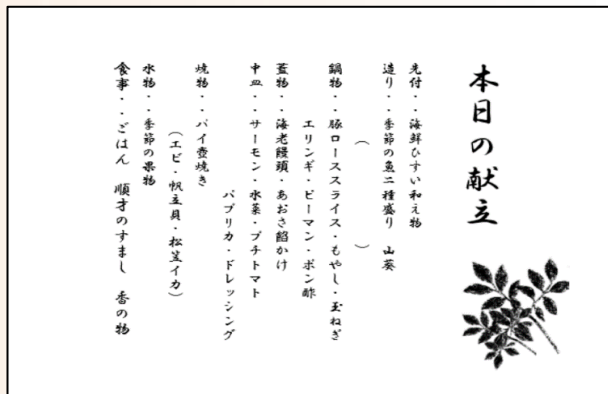 本日の献立
先付・・海鮮ひすい和え物
造り・・季節の魚二種盛り　山葵
（　　　　　　）
鍋物・・豚ローススライス・もやし・玉ねぎ
エリンギ・ピーマン・ポン酢
蓋物・・海老饅頭・あおさ餡かけ
中皿・・サーモン・水菜・プチトマト
パプリカ・ドレッシング
焼物・・パイ壺焼き
（エビ・帆立貝・松笠イカ）
水物・・季節の果物
食事・・ごはん　順才のすまし　香の物